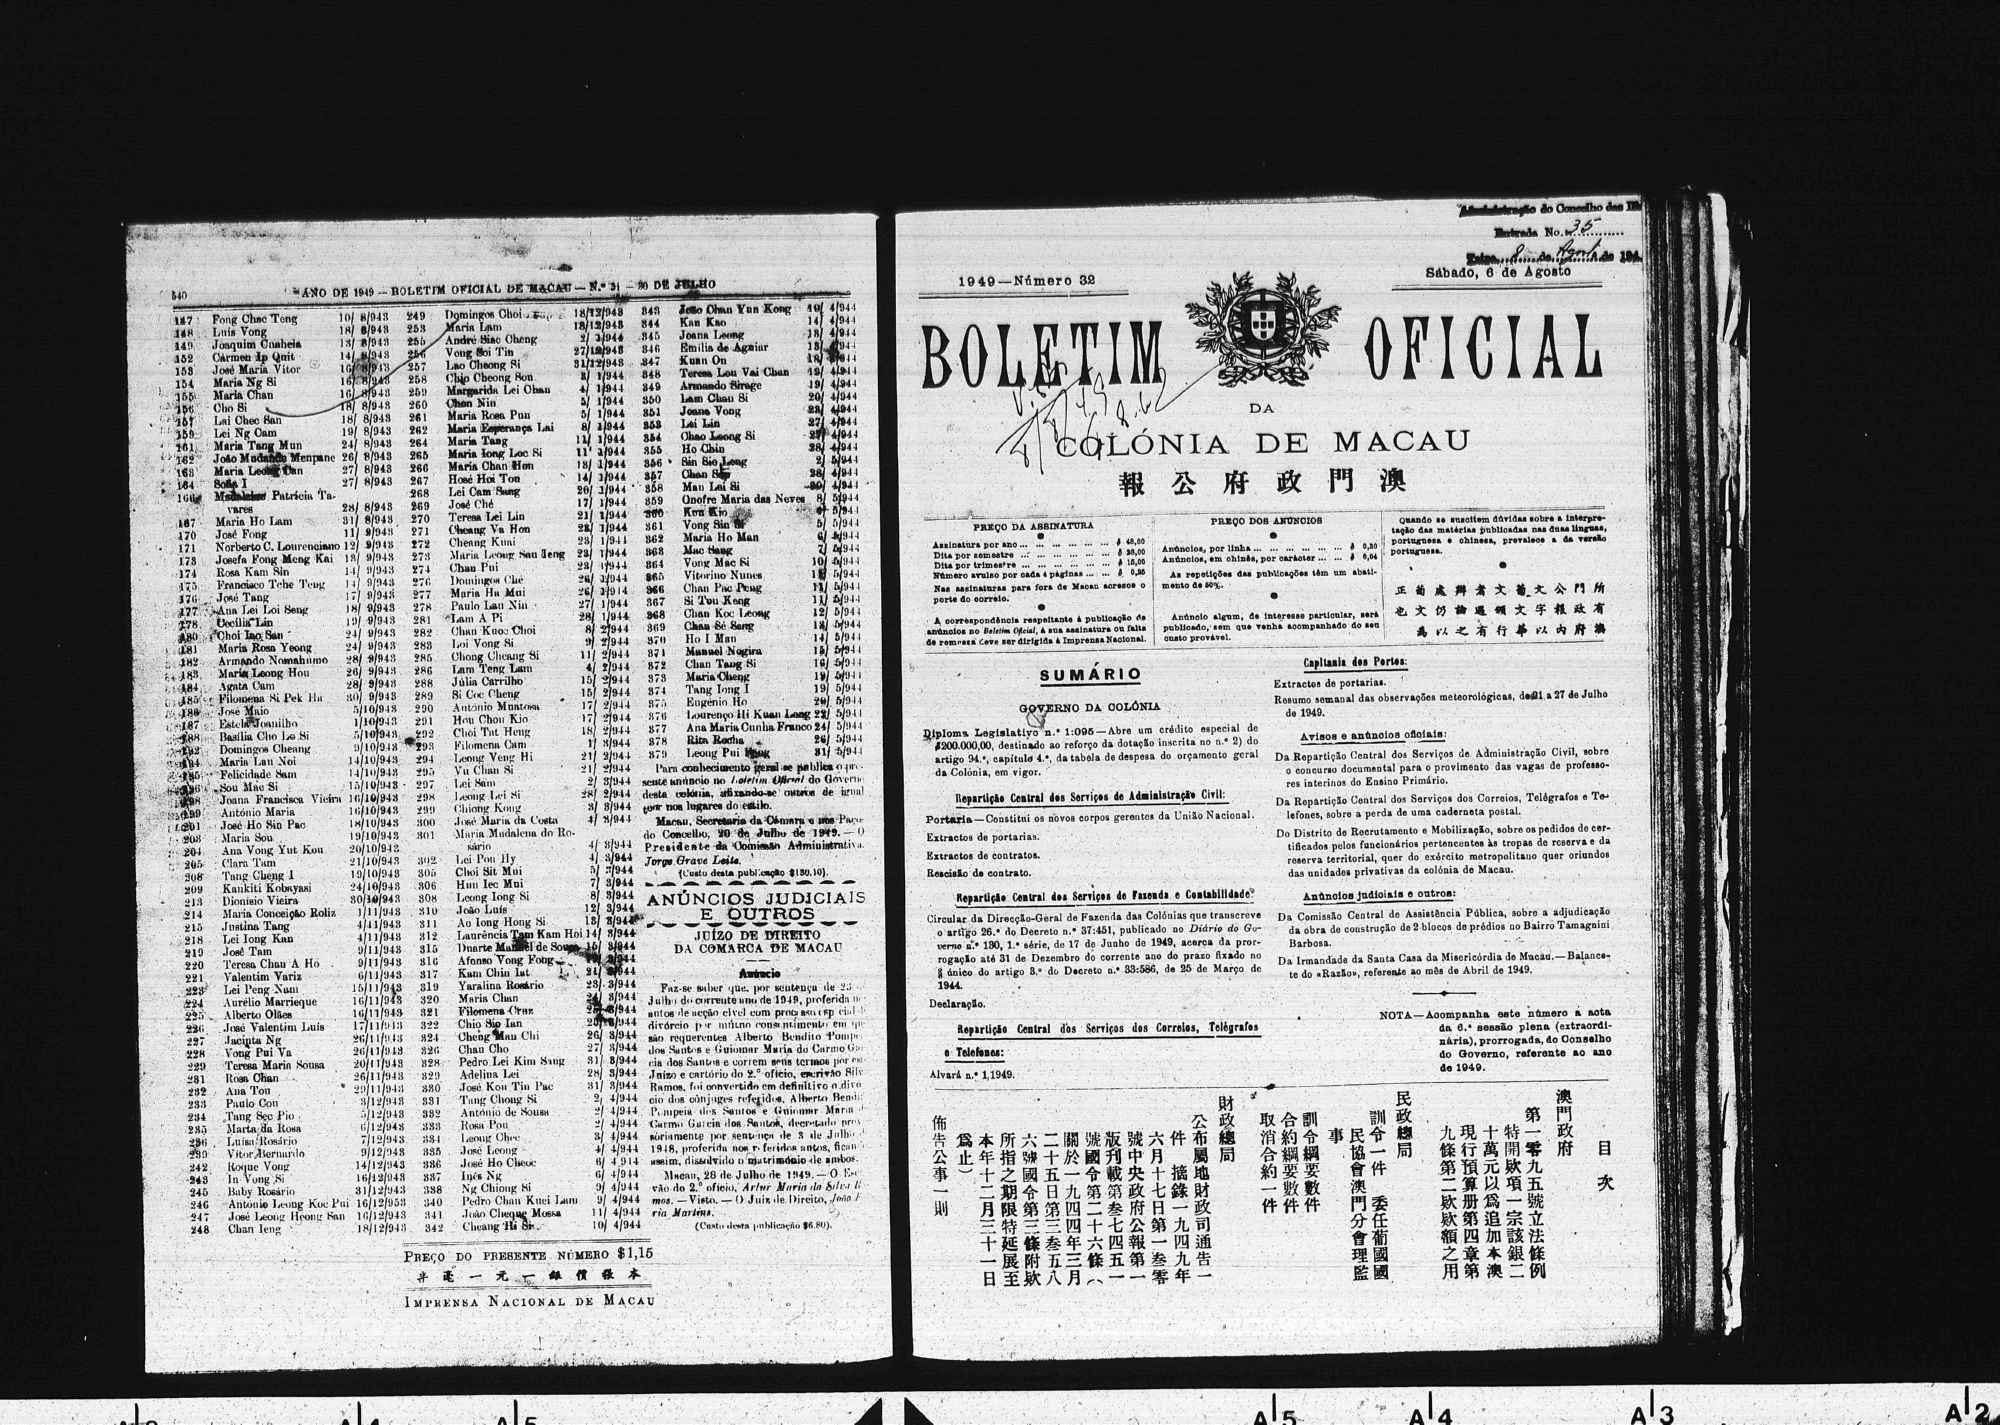 540
ANO DE 1949 — BOLETIM OFICIAL DE MACAU — N.º 31 — 30 DE JULHO
Fong Chac Teng 10/ 8/943
Luís Vong 18/ 8/943
Joaquim Cuaheia 13/ 8/943
152 Cármen Ip Quit 14/ 8/943
153 José Maria Vítor
154 Maria Ng Si
155 Maria Chan
156 Cho Si 18/ 8/943
157 Lai Chec San 18/ 8/943
159 Lei Ng Cam 19/ 8/943
161 Maria Tang Mun 24/ 8/943
162 João Madanda Menpane 26/ 8/943
163 27/ 8/943
164 Sofia I 27/ 8/943
Patrícia Ta-
vares 28/ 8/943
167 Maria Ho Lam 31/ 8/943
170 José Fong 11/ 9/943
171 Norberto C. Lourenciano 12/ 9/943
173 Josefa Fong Meng Kai 13/ 9/943
174 Rosa Kam Sin 14/ 9/943
175 Francisco Tche Teng 14/ 9/943
176 José Tang 17/ 9/943
177 Ana Lei Loi Seng 18/ 9/943
178 Cecília Lin 19/ 9/943
180 Choi Iao San 24/ 9/943
181 Maria Rosa Yeong 24/ 9/943
182 Armando Nomahumo 28/ 9/943
183 Maria Leong Hou 26/ 9/943
184 Agata Cam 28/ 9/943
185 Filomena Si Pek Ha 30/ 9/943
186 José Maio 5/10/943
187 Estela Joanilho 1/10/943
188 Basília Cho Lo Si 5/10/943
Domingos Cheang 9/10/943
Maria Lau Noi 14/10/943
Felicidade Sam 14/10/943
Sou Mac Si 15/10/943
Joana Francisca Vieira 16/10/943
António Maria 16/10/943
201 José Ho Sin Pac 18/10/943
203 Maria Sou 19/10/943
204 Ana Vong Yut Kou 20/10/943
205 Clara Tam 21/10/943
208 Tang Cheng I 19/10/943
209 Kankiti Kobayasi 24/10/943
213 Dionísio Vieira 30/10/943
214 Maria Conceição Roliz 1/11/943
215 Justina Tang 4/11/943
218 Lei Iong Kan 4/11/943
219 José Tam 9/11/943
220 Teresa Chau A Ho 9/11/943
221 Valentim Variz 6/11/943
223 Lei Peng Nam 15/11/943
224 Aurélio Marrieque 16/11/943
225 Alberto Olães 16/11/943
226 José Valentim Luís 17/11/943
227 Jacinta Ng 26/11/943
228 Vong Pui Va 26/11/943
229 Teresa Maria Sousa 20/11/943
231 Rosa Chan 26/11/943
232 Ana Tou 29/11/943
233 Paulo Cou 3/12/943
234 Tang Sec Pio 5/12/943
235 Marta da Rosa 6/12/943
236 Luísa Rosário 7/12/943
239 Vítor Bernardo 9/12/943
242 Roque Vong 14/12/943
243 In Vong Si 16/12/943
245 Baby Rosário 31/12/943
246 António Leong Koc Pui 16/12/953
247 José Leong Heong San 16/12/943
248 Chan Ieng 18/12/943
249 Domingos Choi 18/12/943
253 Maria Lam 18/12/943
255 André Siac Cheng
256 Vong Soi Tin 27/12/943
257 Lao Cheong Si 31/12/943
258 Chio Cheong Son
259 Margarida Lei Chan 4/ 1/944
260 Chan Nin 5/ 1/944
261 Maria Rosa Pun 5/ 1/944
262 Maria Esperança Lai 8/ 1/944
264 Maria Tang 11/ 1/944
265 Maria Iong Loc Si 11/ 1/944
266 Maria Chan Hon 13/ 1/944
267 Hosé Hoi Tou 14/ 1/944
268 Lei Cam Sang 20/ 1/944
269 José Ché 17/ 1/944
270 Teresa Lei Lin 21/ 1/944
271 Cheang Va Hon 22/ 1/944
272 Cheang Kuni 23/ 1/944
273 Maria Leong Sau Ieng 23/ 1/944
274 Chan Pui 23/ 1/944
276 Domingos Ché 26/ 1/944
277 Maria Ha Mui 26/ 1/944
278 Paulo Lau Nin 27/ 1/944
281 Lam A Pi 28/ 1/944
282 Chan Kuoc Choi 8/ 2/944
283 Loi Vong Si 9/ 2/944
285 Chong Cheang Si 11/ 2/944
286 Lam Teng Lam 4/ 2/944
288 Júlia Carrilho 15/ 2/944
289 Si Coc Cheng 15/ 2/944
290 António Muatosa 17/ 2/944
291 Hou Chou Kio 17/ 2/944
292 Choi Tat Heng 18/ 2/944
293 Filomena Cam 1/ 3/944
294 Leong Veng Hi 21/ 2/944
295 Vu Chan Si 21/ 2/944
297 Lei Sam 2/ 3/944
298 Leong Lei Si 28/ 2/944
299 Chiong Kong 3/ 3/944
300 José Maria da Costa 4/ 3/944
301 Maria Madalena do Ro-
sário 4/ 3/944
302 Lei Pou Hy 4/ 3/944
305 Choi Sit Mui 5/ 3/944
306 Hun Iec Mui 7/ 3/944
308 Leong Iong Si 8/ 3/944
310 João Luís 12/ 3/944
311 Ao Iong Hong Si 13/ 3/944
312 Laurência Tam Kam Hoi 14/ 3/944
315 Duarte Manuel de Sousa 15/ 3/944
316 Afonso Vong Fong
317 Kam Chin Iat 21/ 3/944
319 Yaralina Rosário 23/ 3/944
320 Maria Chan 24/ 3/944
321 Filomena Cruz
322 Chio Sio Ian
324 Cheng Mau Chi 26/ 3/944
326 Chau Cho 27/ 3/944
328 Pedro Lei Kim Sang 31/ 3/944
329 Adelina Lei 28/ 3/944
330 José Kou Tin Pac 31/ 3/944
331 Tang Chong Si 2/ 4/944
332 António de Sousa 2/ 4/944
333 Rosa Pou 2/ 4/944
334 Leong Chec 3/ 4/944
335 José Leong 4/ 4/944
336 José Ho Cheoc 6/ 4/944
337 Inês Ng 6/ 4/944
338 Ng Chiong Si 9/ 4/944
340 Pedro Chan Kuei Lam 9/ 4/944
341 João Cheque Mossa 11/ 4/944
342 Cheang Hi Si 10/ 4/944
343 João Chan Yun Kong 10/ 4/944
344 Kan Kao 14/ 4/944
345 Joana Leong 13/ 4/944
346 Emília de Aguiar
347 Kuan On
348 Teresa Lou Vai Chan
349 Armando Sirage 19/ 4/944
350 Lam Chau Si 20/ 4/944
351 Joana Vong
353 Lei Lin 27/ 4/944
354 Chao Leong Si
355 Ho Chin 28/ 4/944
356 Sin Sio Leng 2/ 5/944
357
358 Mau Lai Si
359 Onofre Maria das Neves 8/ 5/944
360 Kou Kio
361 Vong Sin 5/ 5/944
362 Maria Ho Man
363 Mac Sang 7/ 5/944
364 Vong Mac Si 10/ 5/944
365 Vitorino Nunes
366 Chan Pac Peng 11/ 5/944
367 Si Tou Keng 11/ 5/944
368 Chan Koc Leong 12/ 5/944
369 Chan Sé Sang 13/ 5/944
370 Ho I Man 14/ 5/944
371 Manuel Nogira 15/ 5/944
372 Chan Tang Si 16/ 5/944
373 Maria Cheng 19/ 5/944
374 Tang Iong I 19/ 5/944
375 Eugénio Ho 20/ 5/944
376 Lourenço Hi Kuan Leng 22/ 5/944
377 Ana Maria Cunha Franco 24/ 5/944
378 Rita Rocha 26/ 5/944
379 Leong Pui 31/ 5/944
Para conhecimento geral se publica o pre-
sente anúncio no Boletim Oficial do Governo
desta colónia, afixando-se outros de igual
teor nos lugares do estilo.
Macau, Secretaria da Câmara e nos Paços
do Concelho, 20 de Julho de 1949. — O
Presidente da Comissão Administrativa,
Jorge Grave Leite.
(Custo desta publicação $130,10).
ANÚNCIOS JUDICIAIS
E OUTROS
JUÍZO DE DIREITO
DA COMARCA DE MACAU
Anúncio
Faz-se saber que, por sentença de 25
Julho do corrente ano de 1949, proferida
autos de acção cível com processo especial
divórcio por mútuo consentimento em que
são requerentes Alberto Bendito Pompe
dos Santos e Guiomar Maria do Carmo
cia dos Santos e correm seus termos por
Juízo e cartório do 2.º ofício, escrivão Silv
Ramos, foi convertido em definitivo o
cio dos cônjuges referidos, Alberto
Pompeia dos Santos e Guiomar Maria
Carmo Garcia dos Santos, decretado
sòriamente por sentença de 3 de Julho
1948, proferida nos referidos autos, fican
assim, dissolvido o matrimónio de ambos.
Macau, 28 de Julho de 1949. — O
vão do 2.º ofício, Artur Maria da Silva
mos. — Visto. — O Juiz de Direito, João
ria Martins.
(Custo desta publicação $6.80).
PREÇO DO PRESENTE NÚMERO $1,15
半毫一元一銀價張本
IMPRENSA NACIONAL DE MACAU
Administração do Concelho das
Entrada No. 35
8 de de 194
1949 — Número 32
Sábado, 6 de Agosto
BOLETIM OFICIAL
DA
COLÓNIA DE MACAU
報公府政門澳
PREÇO DA ASSINATURA
Assinatura por ano ... $ 48,00
Dita por semestre ... $ 28,00
Dita por trimestre ... $ 15,00
Número avulso por cada 4 páginas ...
Nas assinaturas para fora de Macau acresce o
porte do correio.
A correspondência respeitante à publicação de
anúncios no Boletim Oficial, à sua assinatura ou falta
de remessa deve ser dirigida à Imprensa Nacional.
PREÇO DOS ANÚNCIOS
Anúncios, por linha ...
Anúncios, em chinês, por carácter ... $ 0,04
As repetições das publicações têm um abati-
mento de 50%.
Anúncio algum, de interesse particular, será
publicado, sem que venha acompanhado do seu
custo provável.
Quando se suscitem dúvidas sobre a interpre-
tação das matérias publicadas nas duas línguas,
portuguesa e chinesa, prevalece a da versão
portuguesa.
正葡處辯者文葡文公門所
也文仍論遇頒文字報政有
爲以之有行華以內府澳
SUMÁRIO
GOVERNO DA COLÓNIA
Diploma Legislativo n.º 1:095 — Abre um crédito especial de
$200.000,00, destinado ao reforço da dotação inscrita no n.º 2) do
artigo 94.º, capítulo 4.º, da tabela de despesa do orçamento geral
da Colónia, em vigor.
Repartição Central dos Serviços de Administração Civil:
Portaria — Constitui os novos corpos gerentes da União Nacional.
Extractos de portarias.
Extractos de contratos.
Rescisão de contrato.
Repartição Central dos Serviços de Fazenda e Contabilidade:
Circular da Direcção-Geral de Fazenda das Colónias que transcreve
o artigo 26.º do Decreto n.º 37:451, publicado no Diário do Go-
verno n.º 130, 1.ª série, de 17 de Junho de 1949, acerca da pror-
rogação até 31 de Dezembro do corrente ano do prazo fixado no
§ único do artigo 3.º do Decreto n.º 33:586, de 25 de Março de
1944.
Declaração.
Repartição Central dos Serviços dos Correios, Telégrafos
e Telefones:
Alvará n.º 1,1949.
Capitania dos Portos:
Extractos de portarias.
Resumo semanal das observações meteorológicas, de 21 a 27 de Julho
de 1949.
Avisos e anúncios oficiais:
Da Repartição Central dos Serviços de Administração Civil, sobre
o concurso documental para o provimento das vagas de professo-
res interinos do Ensino Primário.
Da Repartição Central dos Serviços dos Correios, Telégrafos e Te-
lefones, sobre a perda de uma caderneta postal.
Do Distrito de Recrutamento e Mobilização, sobre os pedidos de cer-
tificados pelos funcionários pertencentes às tropas de reserva e da
reserva territorial, quer do exército metropolitano quer oriundos
das unidades privativas da colónia de Macau.
Anúncios judiciais e outros:
Da Comissão Central de Assistência Pública, sobre a adjudicação
da obra de construção de 2 blocos de prédios no Bairro Tamagnini
Barbosa.
Da Irmandade da Santa Casa da Misericórdia de Macau. — Balance-
te do «Razão», referente ao mês de Abril de 1949.
NOTA — Acompanha este número a acta
da 6.ª sessão plena (extraordi-
nária), prorrogada, do Conselho
do Governo, referente ao ano
de 1949.
目次
澳門政府
第一零九五號立法條例
特開欵項一宗該銀二
十萬元以爲追加本澳
現行預算册第四章第
九條第二欵欵額之用
民政總局
訓令一件 委任葡國國
民協會澳門分會理監
事
訓令綱要數件
合約綱要數件
取消合約一件
財政總局
公布屬地財政司通告一
件 摘錄一九四九年
六月十七日第一叁零
號中央政府公報第一
版刊載第叁七四五一
號國令第二十六條(
關於一九四四年三月
二十五日第三叁五八
六號國令第三條附欵
所指之期限特延展至
本年十二月三十一日
爲止)
佈告公事一則
A5
A4
A3
A2